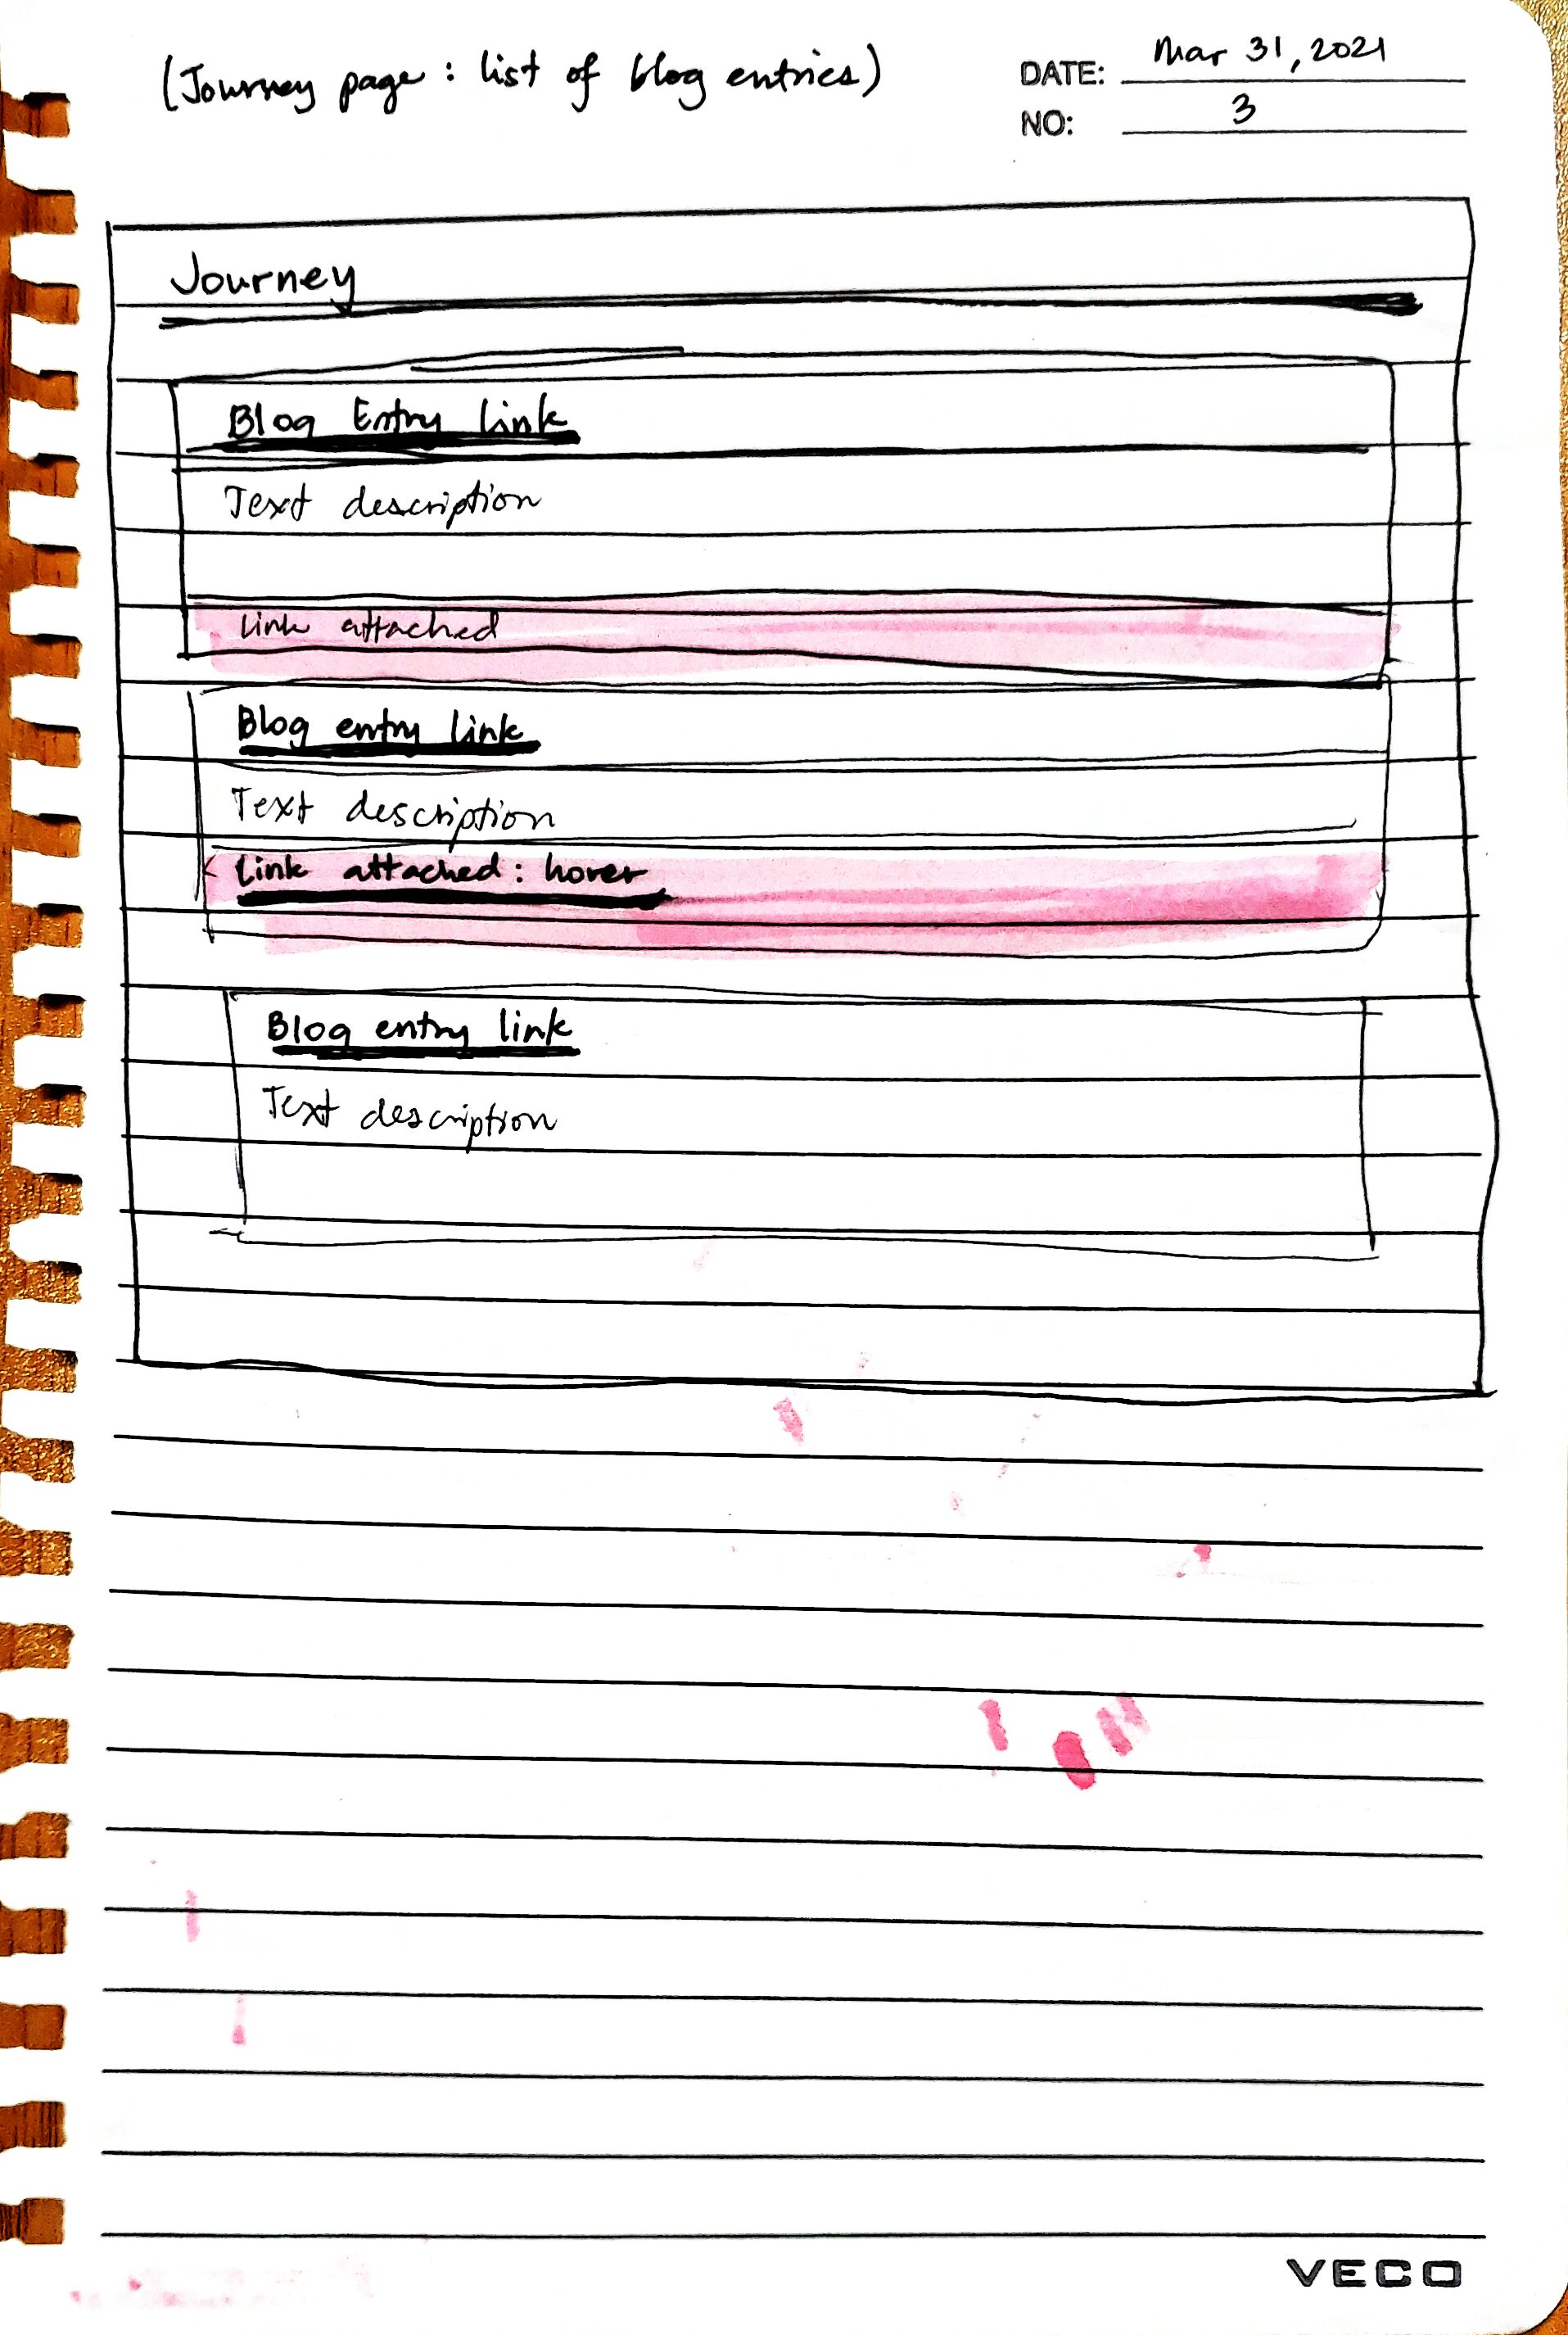 (Journey page : list of blog entries)
DATE: Mar 31, 2021
NO: 3
Journey
Blog Entry link
Text description
link attached
Blog entry link
Text description
link attached: hover
Blog entry link
Text description
VECO